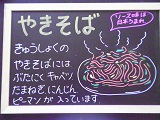 やきそば
きゅうしょくの
やきそばには
ぶたにく キャベツ
たまねぎ、にんじん
ピーマン が入っています
ソース味は
日本うまれ